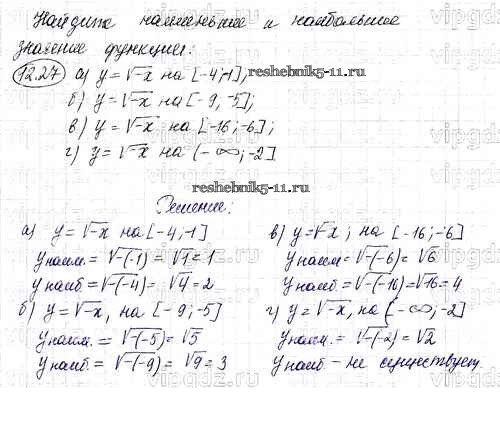 Найдите наименьшее и наибольшее
значение функции:
12.27 а) y = √-x на [-4;-1];
reshebnik5-11.ru
б) y = √-x на [-9,-5];
в) y = √-x на [-16;-6];
г) y = √-x на (-∞;-2]
Решение:
reshebnik5-11.ru
а) y = √-x на [-4,-1]
y наим. = √-(-1) = √1 = 1
y наиб = √-(-4) = √4 = 2
б) y = √-x, на [-9;-5]
y наим. = √-(-5) = √5
y наиб. = √-(-9) = √9 = 3
в) y = √-x, на [-16,-6]
y наим = √-(-6) = √6
y наиб = √-(-16) = √16 = 4
г) y = √-x, на (-∞;-2]
y наим. = √-(-2) = √2
y наиб - не существует.
vipgdz.ru